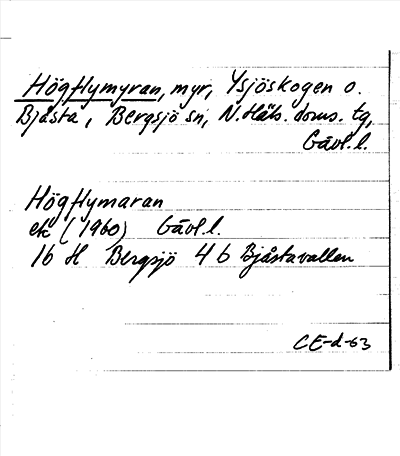 Högflymyran, myr, Ysjöskogen o.
Bjåsta, Bergsjö sn, N. Häls. doms. tg,
Gävl.l.
Högflymaran
ek (1960) Gävl.l.
16 H Bergsjö 4 b Bjåstavallen
CE-d-63